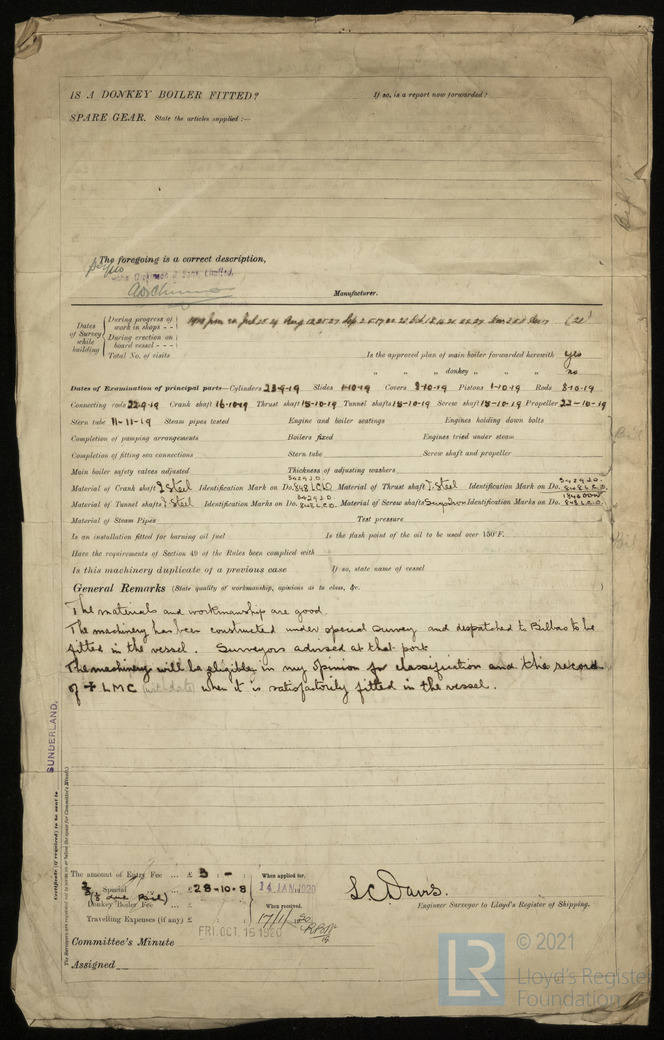 IS A DONKEY BOILER FITTED? If so, is a report now forwarded?
SPARE GEAR. State the articles supplied :—
The foregoing is a correct description,
John Dickinson & Sons Limited.
Manufacturer.
Dates of Survey while building
During progress of work in shops - -
During erection on board vessel - - -
Total No. of visits
Is the approved plan of main boiler forwarded herewith yes
" " " donkey " " " no
Dates of Examination of principal parts—Cylinders 23-9-19 Slides 1-10-19 Covers 8-10-19 Pistons 1-10-19 Rods 8-10-19
Connecting rods 22-9-19 Crank shaft 16-10-19 Thrust shaft 15-10-19 Tunnel shafts 15-10-19 Screw shaft 15-10-19 Propeller 22-10-19
Stern tube 11-11-19 Steam pipes tested Engine and boiler seatings Engines holding down bolts
Completion of pumping arrangements Boilers fixed Engines tried under steam
Completion of fitting sea connections Stern tube Screw shaft and propeller
Main boiler safety valves adjusted Thickness of adjusting washers
Material of Crank shaft I Steel Identification Mark on Do. 848 LCD Material of Thrust shaft I. Steel Identification Mark on Do. 848 L.C.D.
Material of Tunnel shafts I. Steel Identification Marks on Do. 848 L.C.D. Material of Screw shafts Identification Marks on Do. 848 L.C.D.
Material of Steam Pipes Test pressure
Is an installation fitted for burning oil fuel Is the flash point of the oil to be used over 150°F.
Have the requirements of Section 49 of the Rules been complied with
Is this machinery duplicate of a previous case If so, state name of vessel
General Remarks (State quality of workmanship, opinions as to class, &c. )
The materials and workmanship are good.
The machinery has been constructed under special survey and despatched to Bilbao to be
fitted in the vessel. Surveyors advised at that port.
The machinery will be eligible, in my opinion for classification and the record
of + LMC (with date) when it is satisfactorily fitted in the vessel.
SUNDERLAND.
Certificate (if required) to be sent to
The Surveyors are requested not to write on or below the space for Committee's Minute.
The amount of Entry Fee ... £ 3 : -
Special ... £ 28-10-8
Donkey Boiler Fee ... £
Travelling Expenses (if any) £
When applied for.
14 JAN. 1920
When received.
17/1/20
L.C. Davis.
Engineer Surveyor to Lloyd's Register of Shipping.
Committee's Minute FRI. OCT. 15 1920
Assigned
LR
© 2021
Lloyd's Register
Foundation